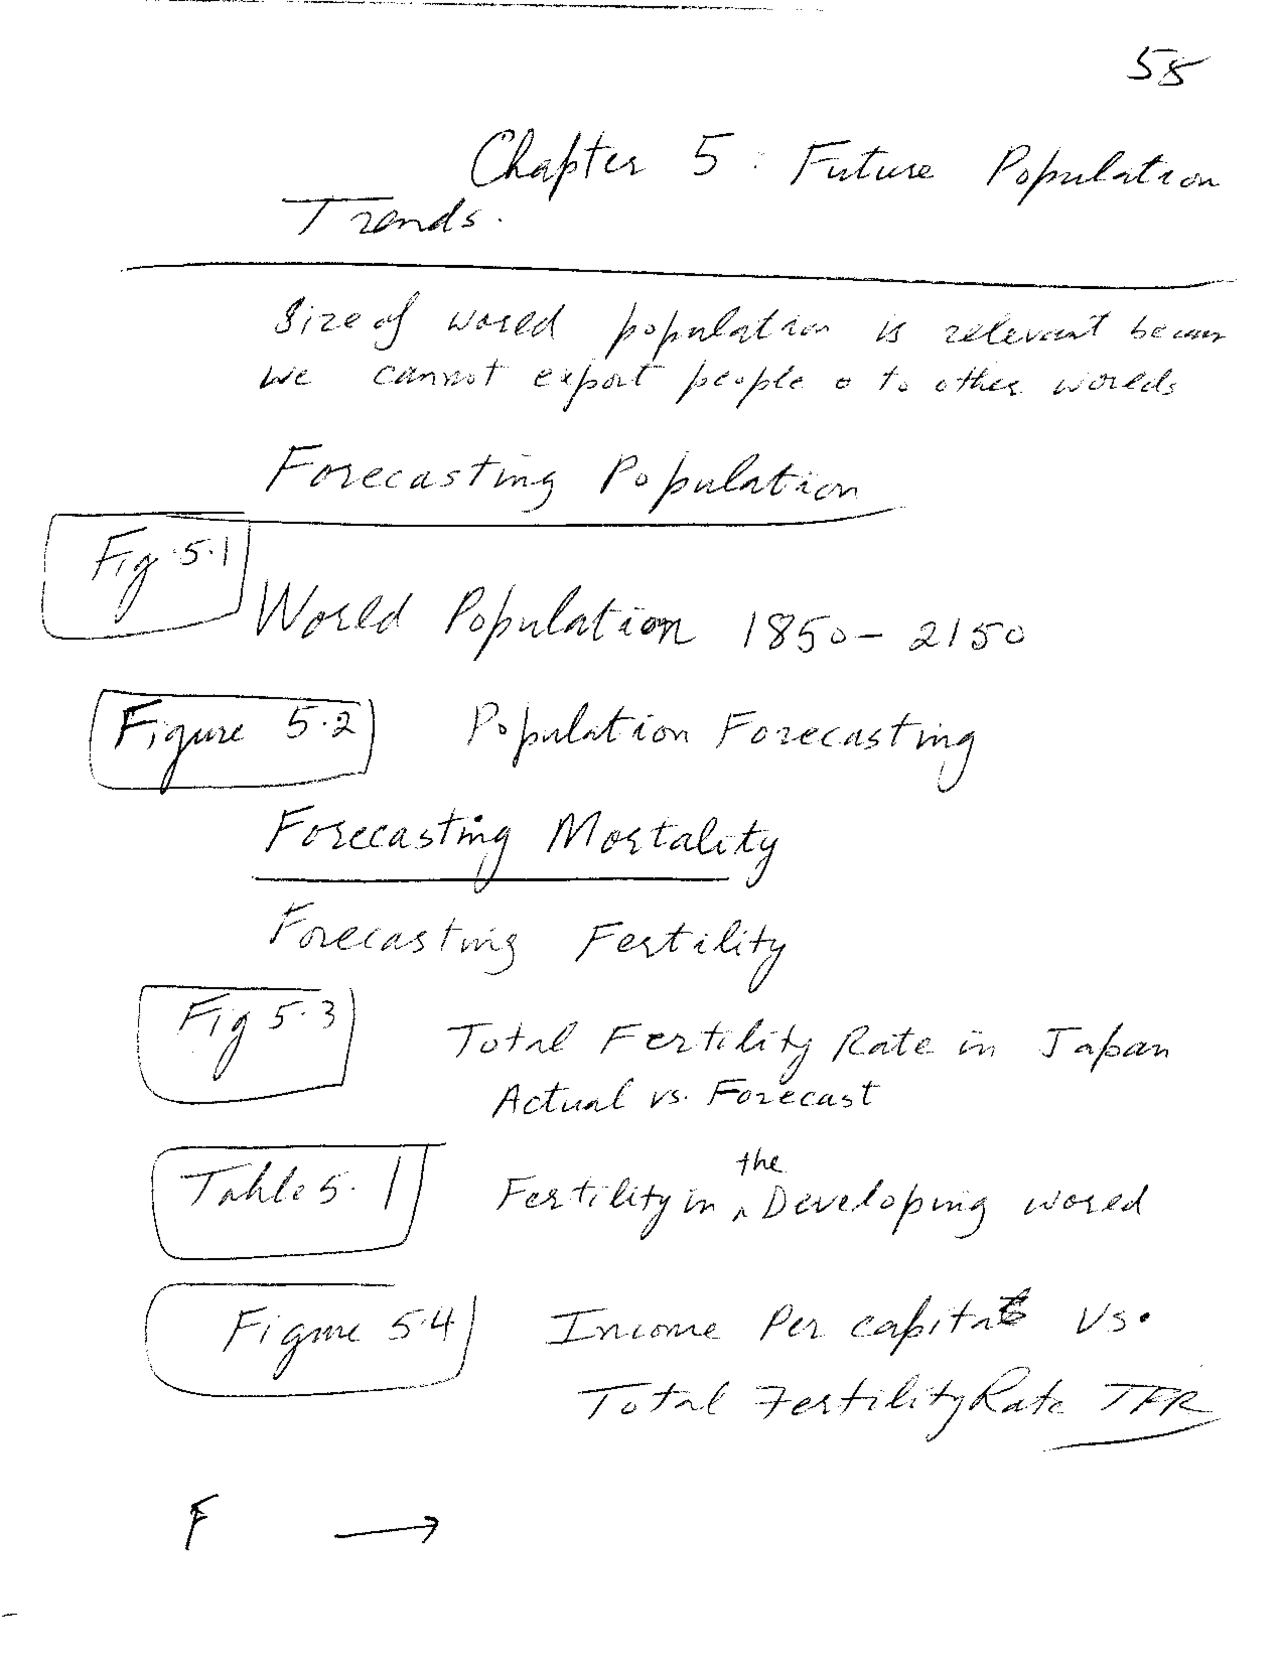 58
Chapter 5: Future Population
Trends.
Size of world population is relevant because
we cannot export people to other worlds
Forecasting Population
Fig 5.1
World Population 1850-2150
Figure 5.2 Population Forecasting
Forecasting Mortality
Forecasting Fertility
Fig 5.3 Total Fertility Rate in Japan
Actual vs. Forecast
Table 5.1 Fertility in the Developing world
Figure 5.4 Income Per capita Vs.
Total Fertility Rate TFR
F →